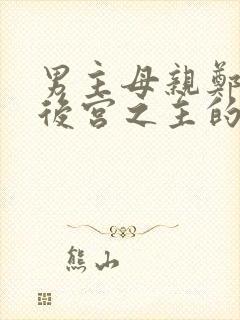 男主母親鄭
後宮之主的
熊山